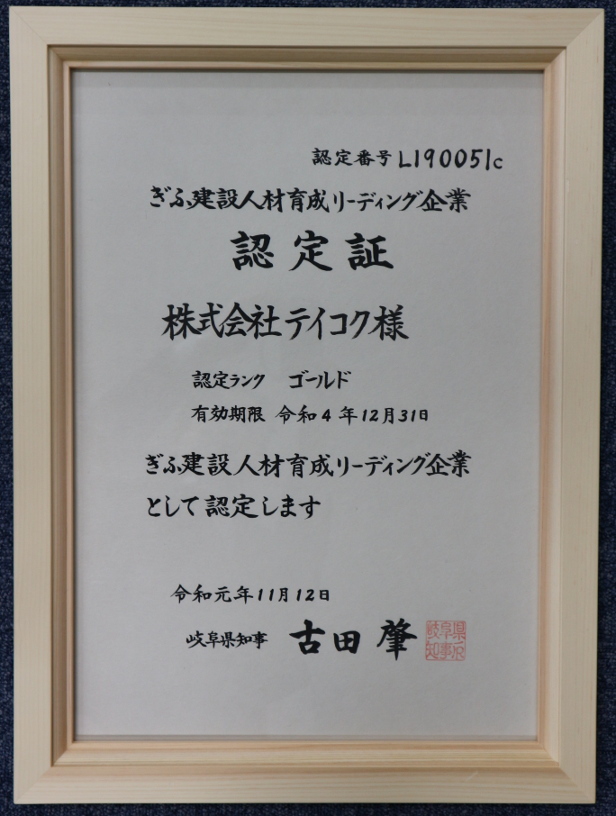 認定番号 L190051c
ぎふ建設人材育成リーディング企業
認定証
株式会社テイコク様
認定ランク ゴールド
有効期限 令和4年12月31日
ぎふ建設人材育成リーディング企業
として認定します
令和元年11月12日
岐阜県知事 古田 肇